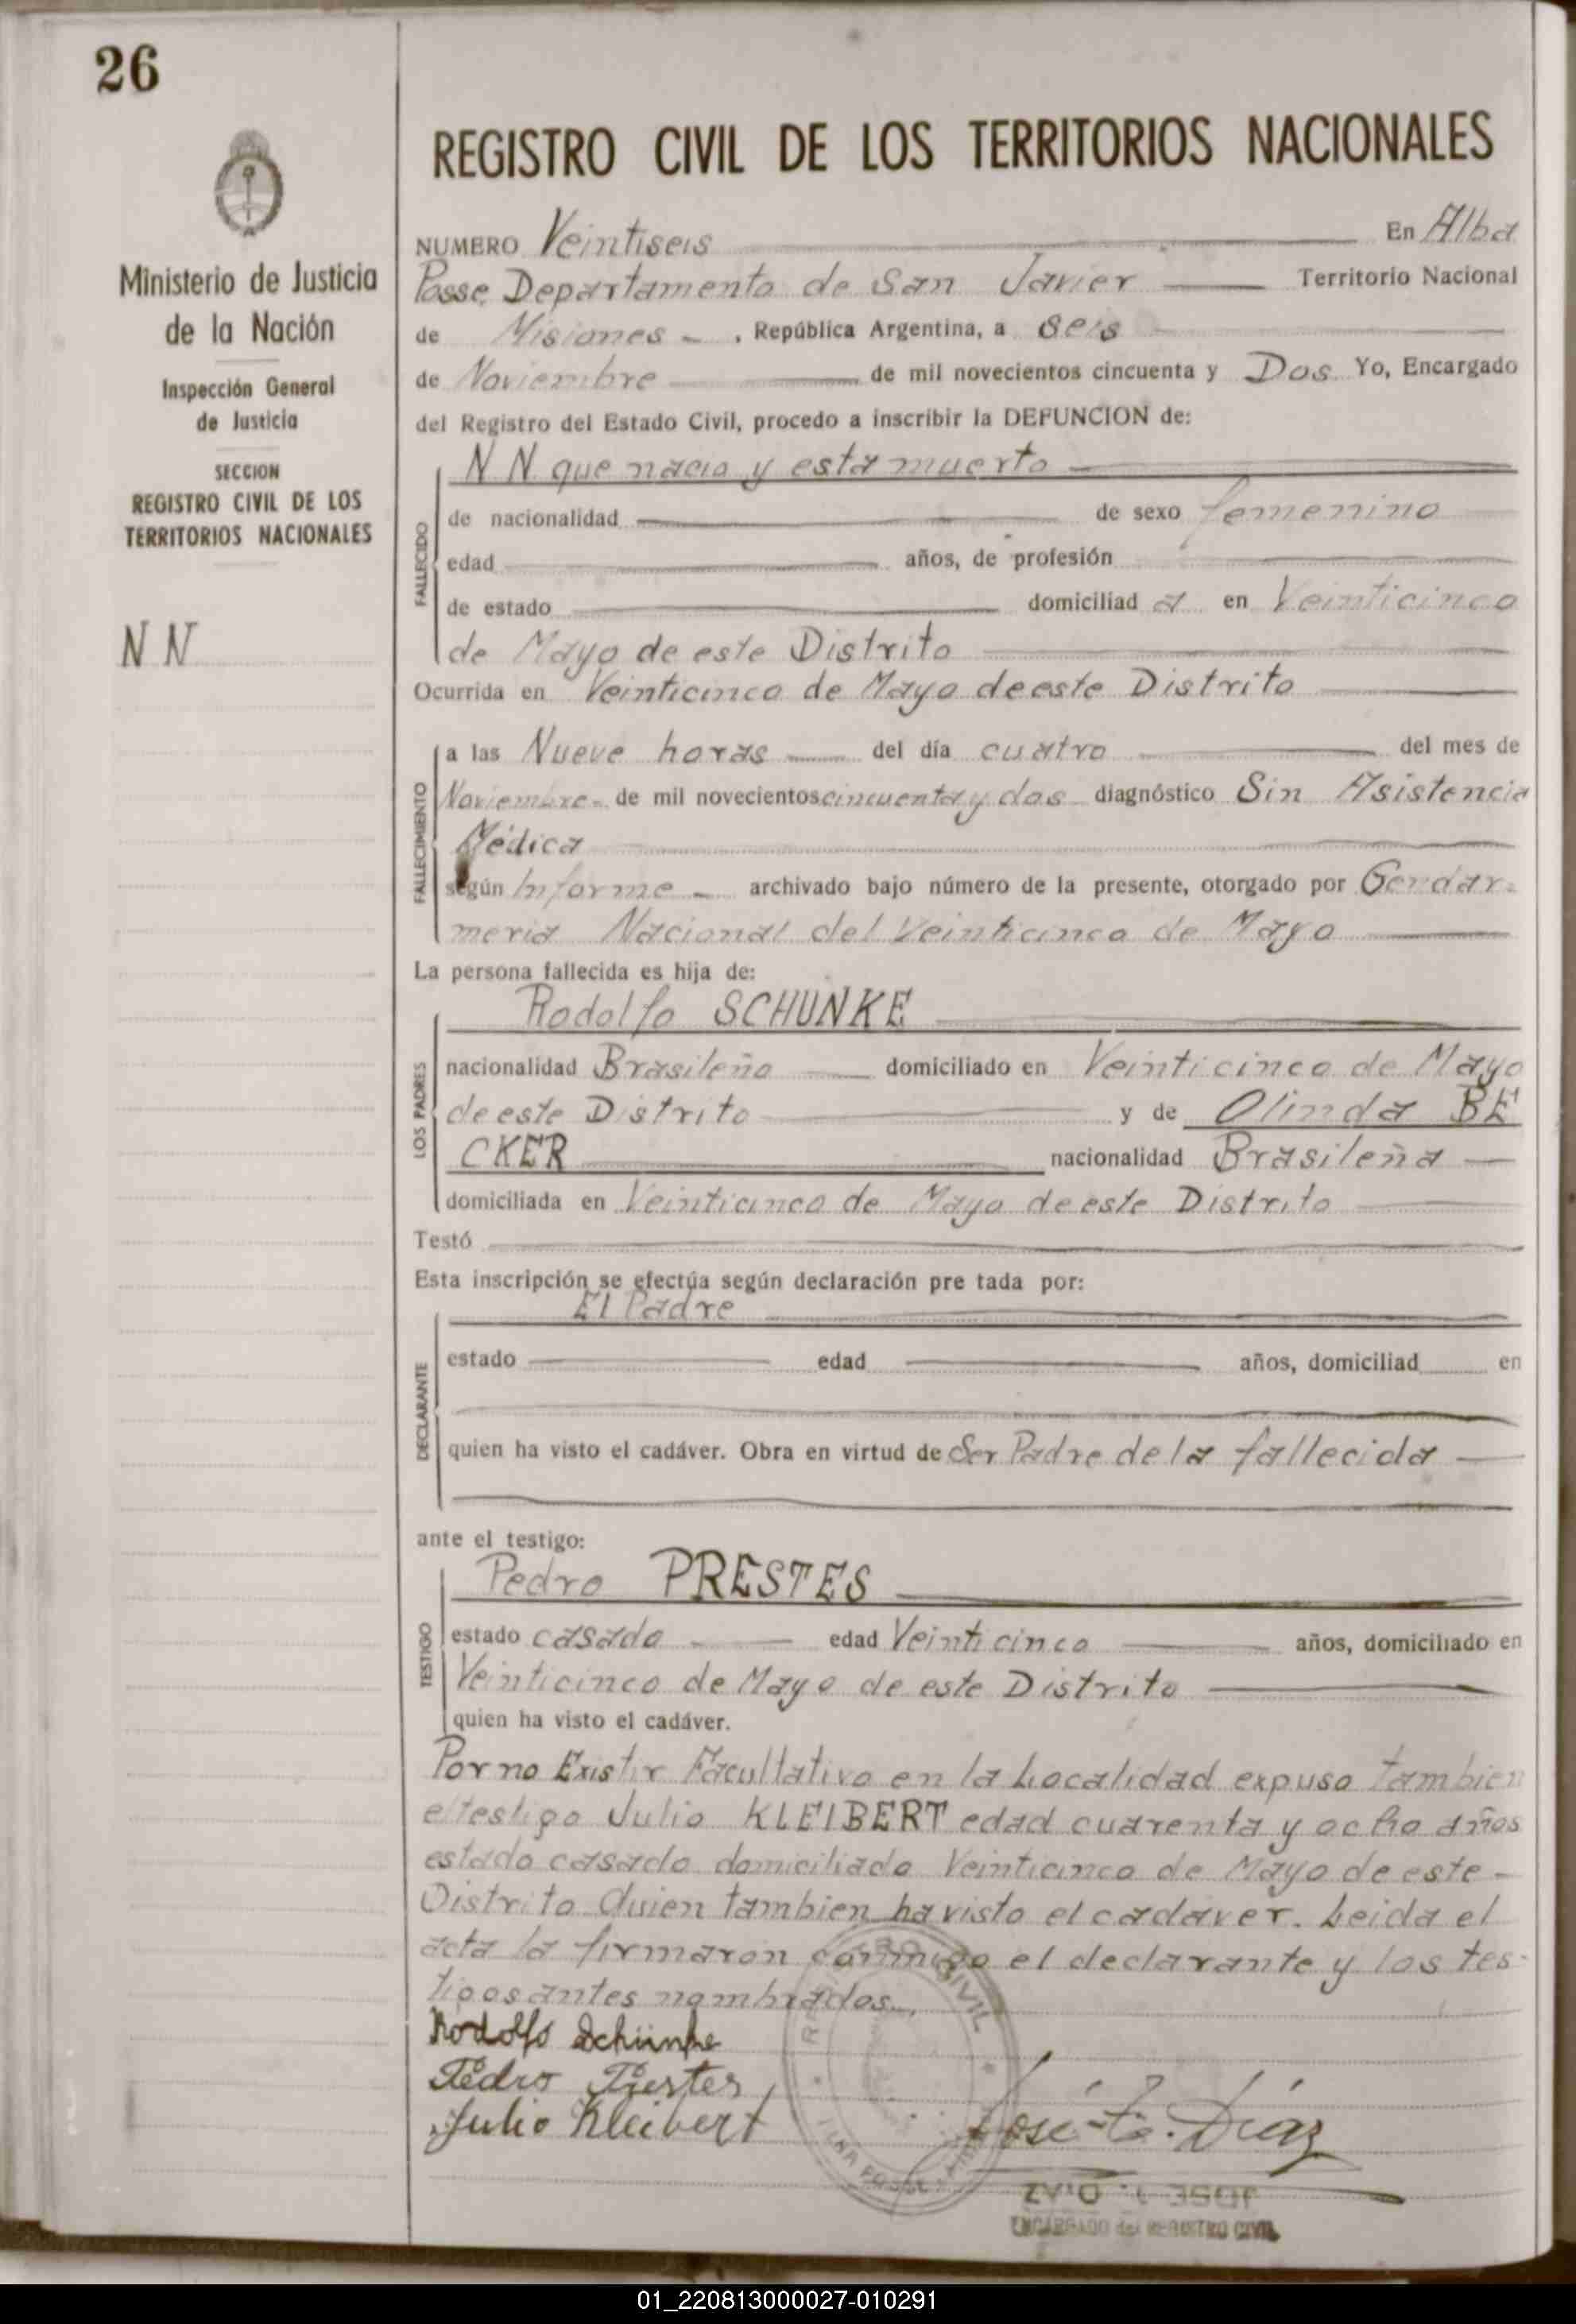 26
REGISTRO CIVIL DE LOS TERRITORIOS NACIONALES
Ministerio de Justicia
de la Nación
Inspección General
de Justicia
SECCION
REGISTRO CIVIL DE LOS
TERRITORIOS NACIONALES
N N
NUMERO Veintiseis En Alba
Posse Departamento de San Javier Territorio Nacional
de Misiones - , República Argentina, a Seis
de Noviembre de mil novecientos cincuenta y Dos Yo, Encargado
del Registro del Estado Civil, procedo a inscribir la DEFUNCION de:
N N que nacio y esta muerto
FALLECIDO
de nacionalidad de sexo femenino
edad años, de profesión
de estado domiciliad a en Veinticinco
de Mayo de este Distrito
Ocurrida en Veinticinco de Mayo de este Distrito
FALLECIMIENTO
a las Nueve horas del día cuatro del mes de
Noviembre - de mil novecientos cincuenta y dos diagnóstico Sin Asistencia
Médica
según Informe - archivado bajo número de la presente, otorgado por Gendar-
meria Nacional del Veinticinco de Mayo
La persona fallecida es hija de:
Rodolfo SCHUNKE
LOS PADRES
nacionalidad Brasileño domiciliado en Veinticinco de Mayo
de este Distrito y de Olinda BE
CKER nacionalidad Brasileña
domiciliada en Veinticinco de Mayo de este Distrito
Testó
Esta inscripción se efectúa según declaración pre tada por:
El Padre
DECLARANTE
estado edad años, domiciliad en
quien ha visto el cadáver. Obra en virtud de Ser Padre de la fallecida
ante el testigo:
Pedro PRESTES
TESTIGO
estado casado edad Veinticinco años, domiciliado en
Veinticinco de Mayo de este Distrito
quien ha visto el cadáver.
Por no Existir Facultativo en la Localidad expuso tambien
el testigo Julio KLEIBERT edad cuarenta y ocho años
estado casado domiciliado Veinticinco de Mayo de este -
Distrito Quien tambien ha visto el cadaver. Leida el
acta la firmaron conmigo el declarante y los tes-
tigos antes nombrados.
Rodolfo Schünke
Pedro Prestes
Julio Kleibert
José E. Díaz
REGISTRO CIVIL
ENCARGADO del REGISTRO CIVIL
01_220813000027-010291